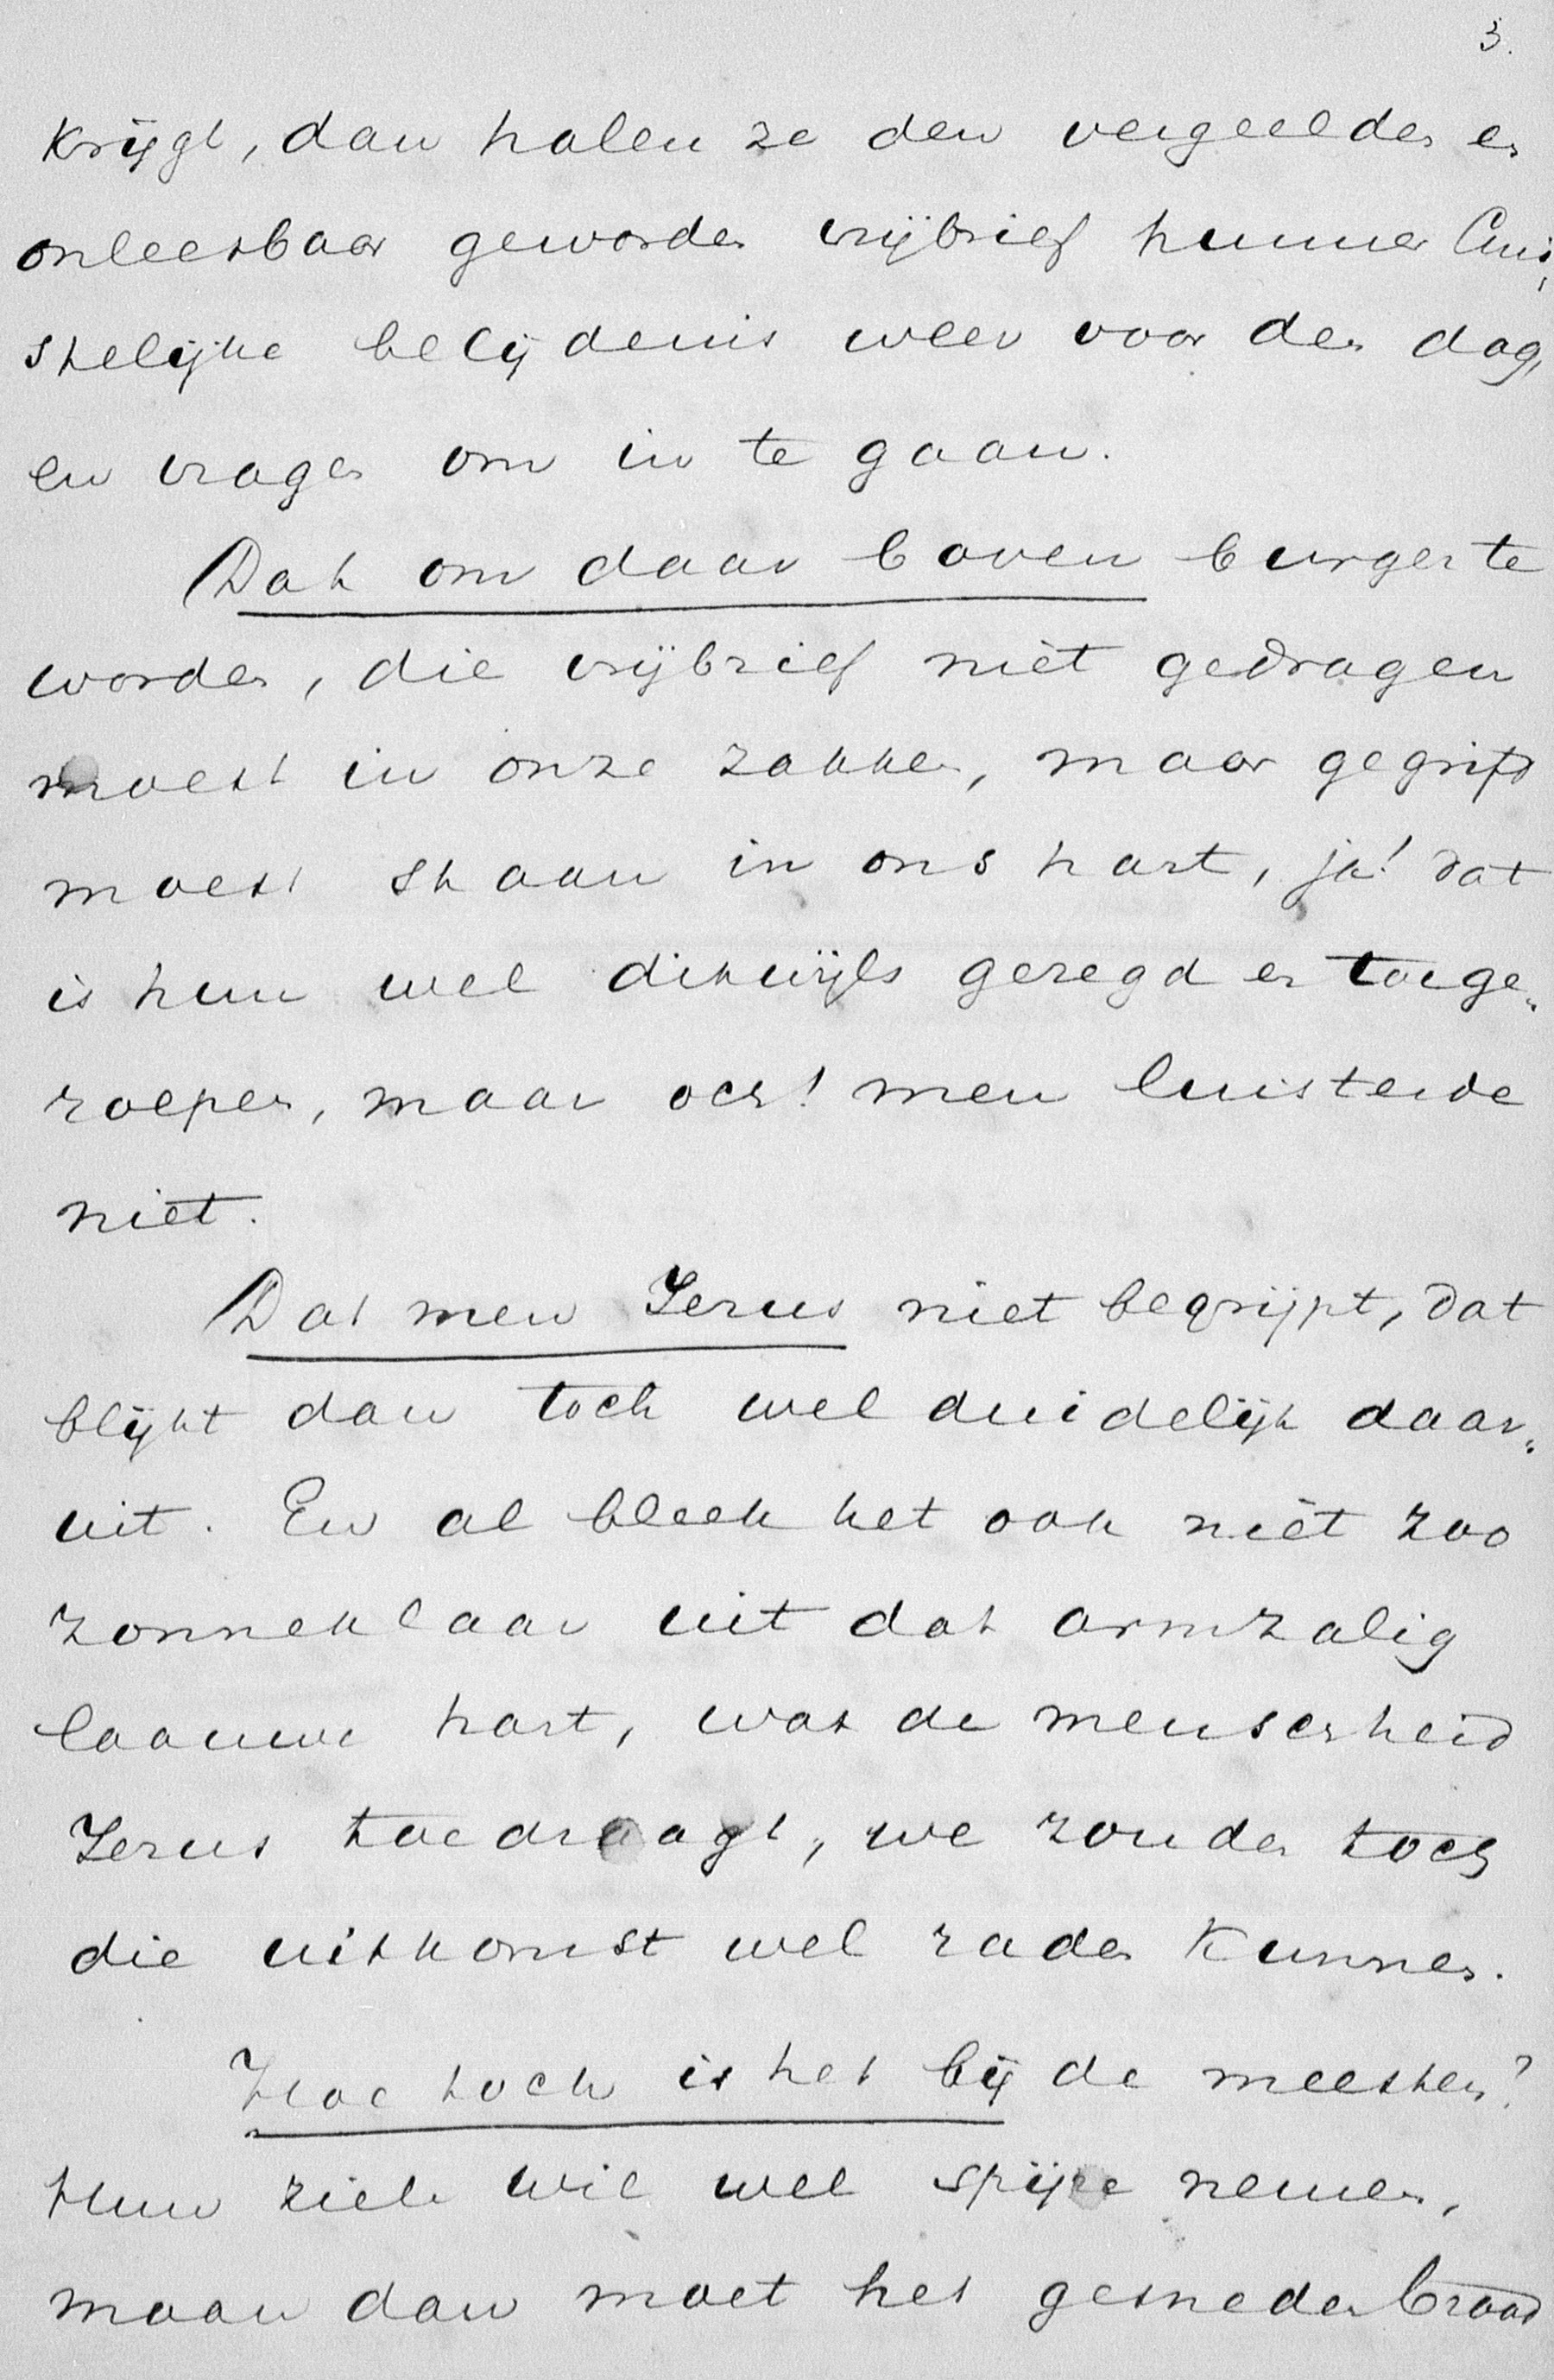 3.
krijgt, dan halen ze den vergeelden en
onleesbaar geworden vrijbrief hunner Chri,
stelijke belijdenis weer voor den dag,
en vragen om in te gaan.
Dat om daar boven burger te
worden, die vrijbrief niet gedragen
moest in onze zakken, maar gegrift
moest staan in ons hart, ja! dat
is hun wel dikwijls gezegd en toege„
roepen, maar och! men luisterde
niet.
Dat men Jezus niet begrijpt, dat
blijkt dan toch wel duidelijk daar„
uit. En al bleek het ook niet zoo
zonneklaar uit dat armzalig
laauwe hart, wat de menschheid
Jezus toedraagt, we zouden toch
die uitkomst wel raden kunnen.
Hoe toch is het bij de meesten?
Hun ziele wil wel spijze nemen,
maar dan moet het gesneden brood